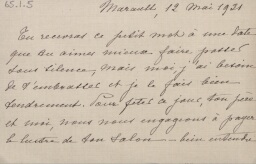 65.1.5
Marvault, 12 Mai 1921
Tu recevras ce petit mot à une date
que tu aimes mieux faire passer
sous silence, mais moi j'ai besoin
de t'embrasser et je le fais bien
tendrement. Pour fêter ce jour, ton père
et moi, nous nous engageons à payer
le lustre de ton salon — bien entendu